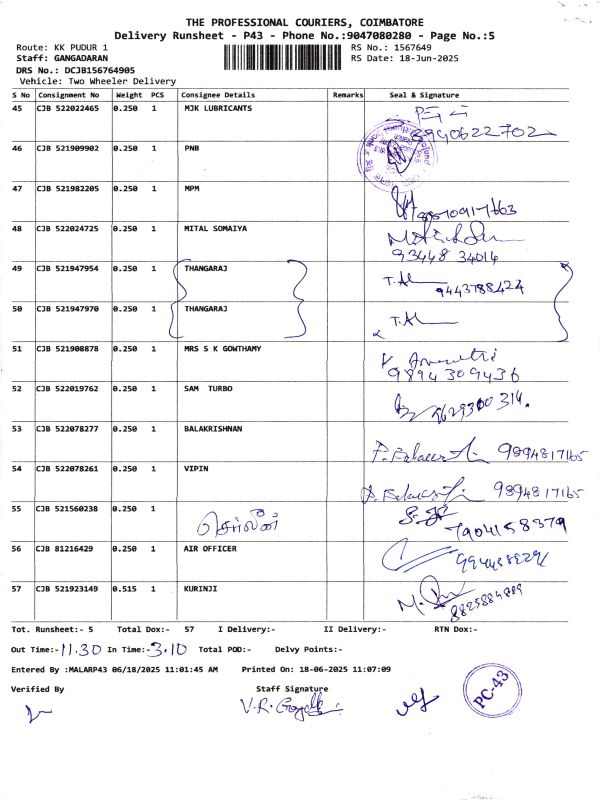 THE PROFESSIONAL COURIERS, COIMBATORE
Delivery Runsheet - P43 - Phone No.:9047080280 - Page No.:5
Route: KK PUDUR 1
RS No.: 1567649
Staff: GANGADARAN
RS Date: 18-Jun-2025
DRS No.: DCJB156764905
Vehicle: Two Wheeler Delivery
S No Consignment No Weight PCS Consignee Details Remarks Seal & Signature
45 CJB 522022465 0.250 1 MJK LUBRICANTS
8940622702
46 CJB 521909902 0.250 1 PNB
47 CJB 521982205 0.250 1 MPM
48 CJB 522024725 0.250 1 MITAL SOMAIYA
93448 34014
49 CJB 521947954 0.250 1 THANGARAJ
9443788424
50 CJB 521947970 0.250 1 THANGARAJ
51 CJB 521908878 0.250 1 MRS S K GOWTHAMY
9894309436
52 CJB 522019762 0.250 1 SAM TURBO
9629300314.
53 CJB 522078277 0.250 1 BALAKRISHNAN
9894817165
54 CJB 522078261 0.250 1 VIPIN
9894817165
55 CJB 521560238 0.250 1 செல்வின்
7904158379
56 CJB 81216429 0.250 1 AIR OFFICER
57 CJB 521923149 0.515 1 KURINJI
Tot. Runsheet:- 5 Total Dox:- 57 I Delivery:- II Delivery:- RTN Dox:-
Out Time:- 11.30 In Time:- 3.10 Total POD:- Delvy Points:-
Entered By :MALARP43 06/18/2025 11:01:45 AM Printed On: 18-06-2025 11:07:09
Verified By Staff Signature
PC-43